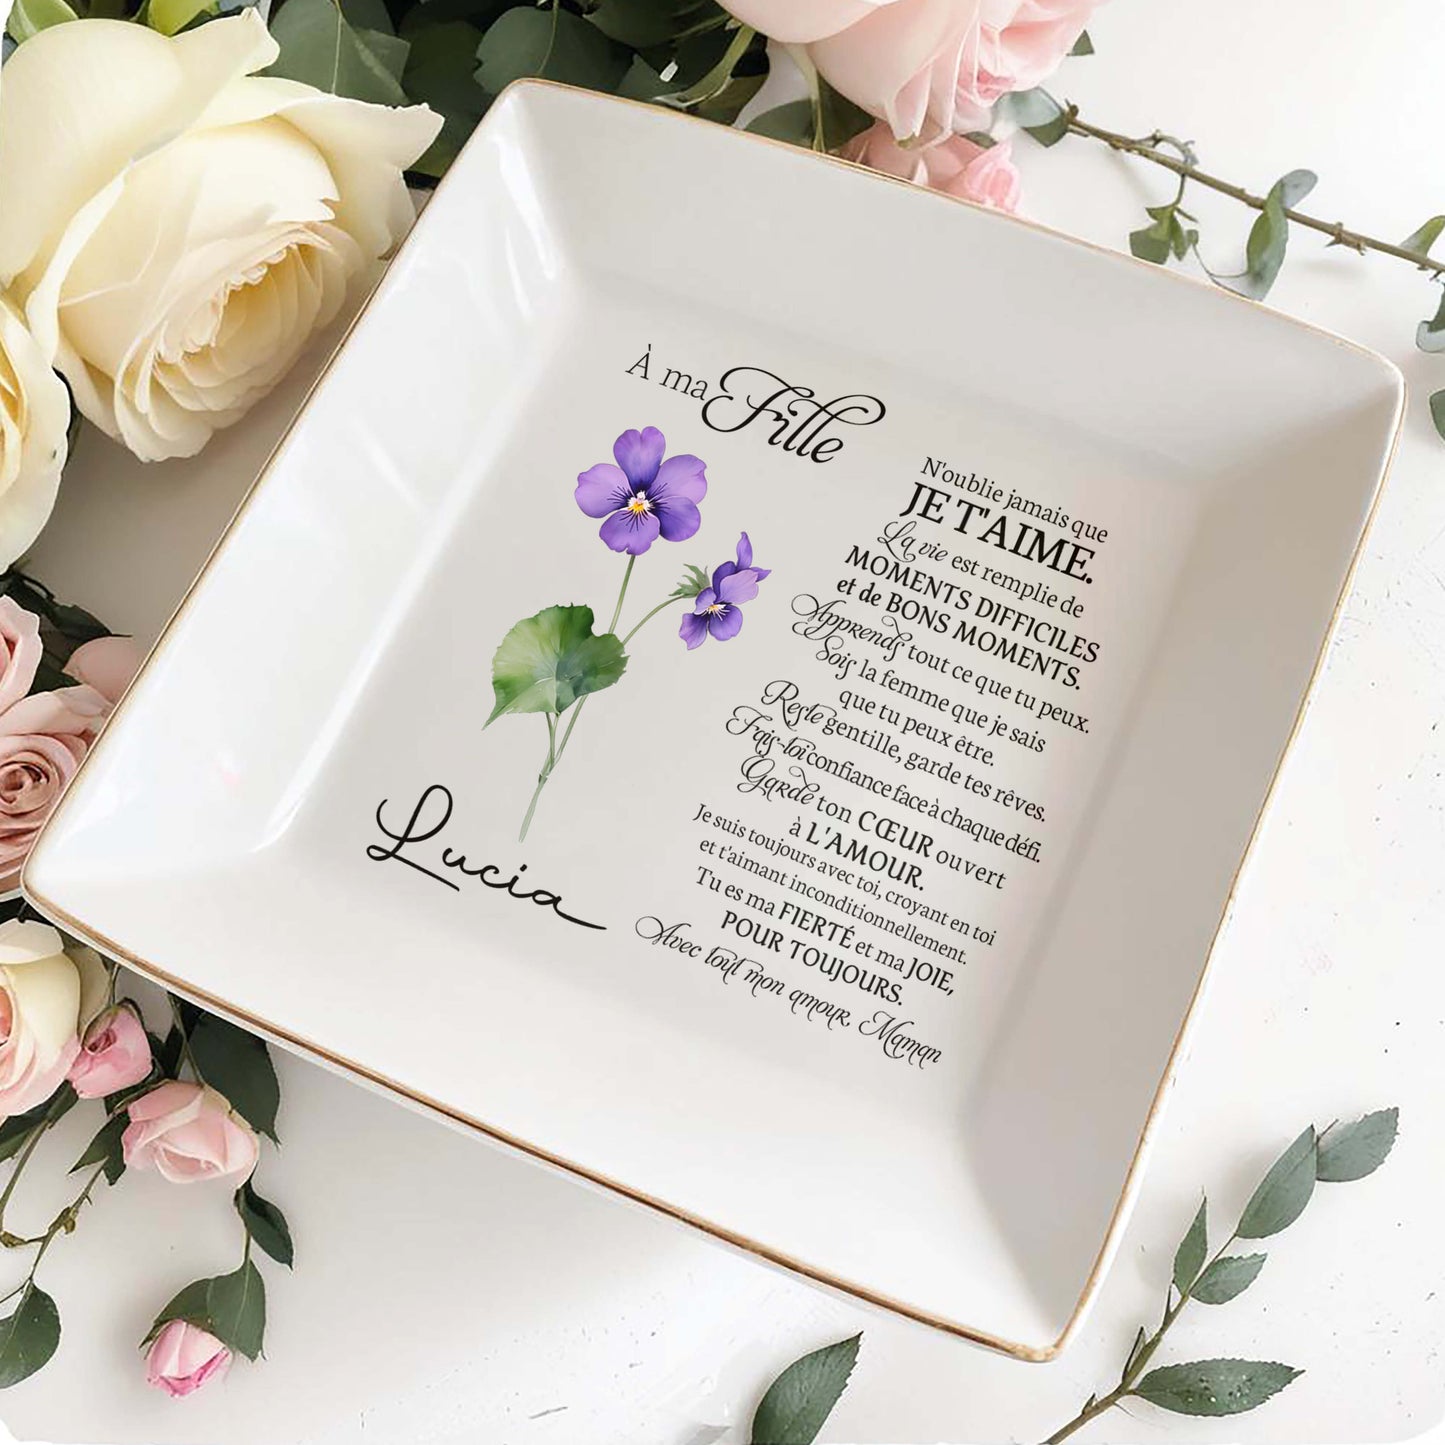 À ma Fille
N'oublie jamais que
JE T'AIME.
La vie est remplie de
MOMENTS DIFFICILES
et de BONS MOMENTS.
Apprends tout ce que tu peux.
Sois la femme que je sais
que tu peux être.
Reste gentille, garde tes rêves.
Fais-toi confiance face à chaque défi.
Garde ton CŒUR ouvert
à L'AMOUR.
Je suis toujours avec toi, croyant en toi
et t'aimant inconditionnellement.
Tu es ma FIERTÉ et ma JOIE,
POUR TOUJOURS.
Avec tout mon amour, Maman
Lucia